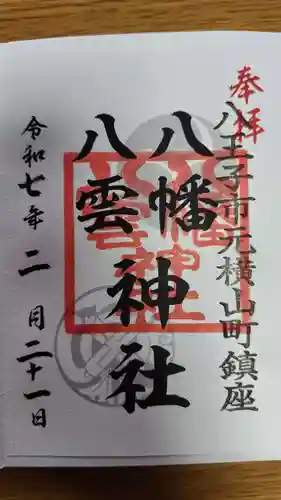 奉拝
八王子市元横山町鎮座
八幡
八雲
神社
令和七年二月二十一日